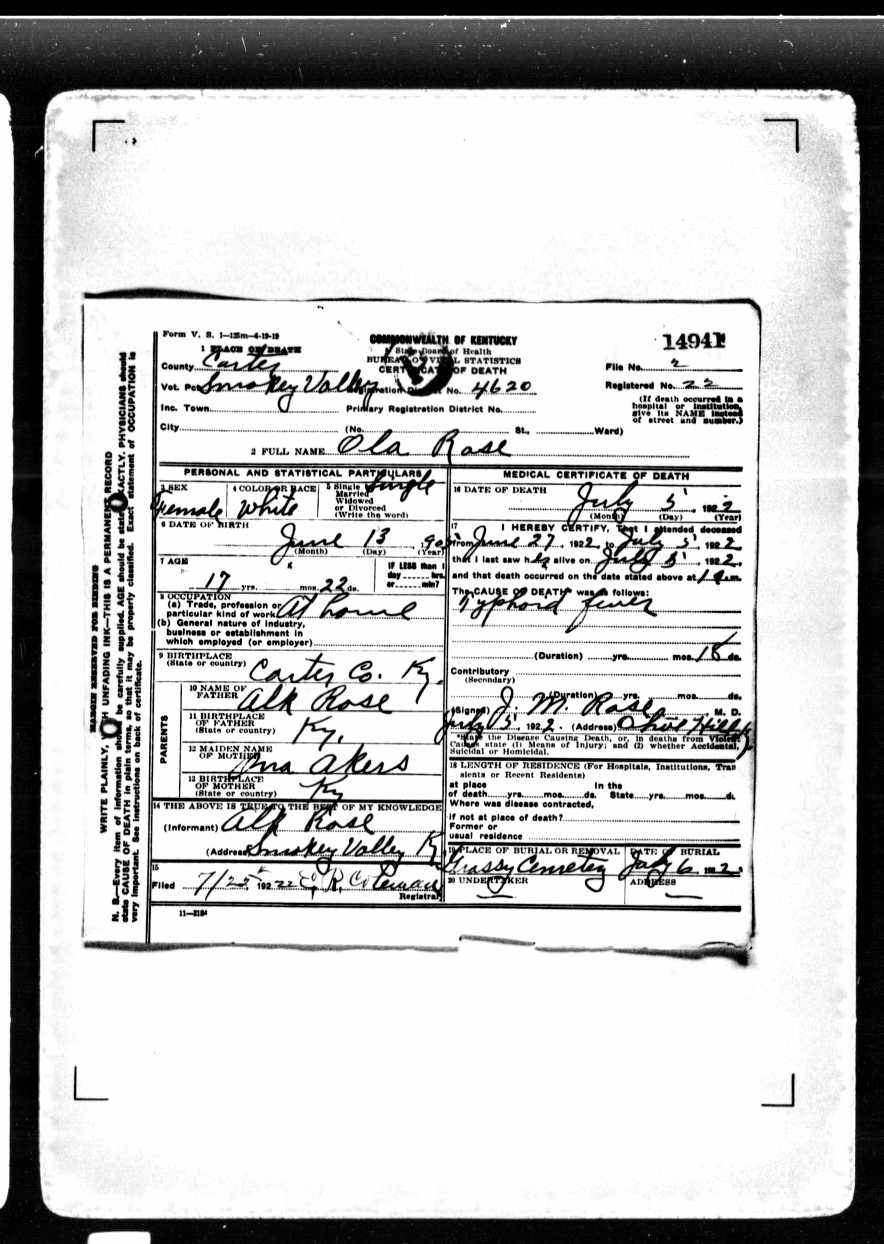 Form V. S. 1-125m-4-19-19
COMMONWEALTH OF KENTUCKY
14941
1 PLACE OF DEATH
State Board of Health
BUREAU OF VITAL STATISTICS
CERTIFICATE OF DEATH
County Carter
File No. 2
Vot. Pct Smokey Valley Registration District No. 4620
Registered No. 22
Inc. Town Primary Registration District No.
(If death occurred in a
hospital or institution,
give its NAME instead
of street and number.)
City (No. St., Ward)
2 FULL NAME Ola Rose
PERSONAL AND STATISTICAL PARTICULARS
3 SEX
Female
4 COLOR OR RACE
White
5 Single
Married
Widowed
or Divorced
(Write the word)
Single
6 DATE OF BIRTH
June 13, 905
(Month) (Day) (Year)
7 AGE
17 yrs. mos. 22 ds.
IF LESS than 1
day hrs.
or min?
8 OCCUPATION
(a) Trade, profession or
particular kind of work At home
(b) General nature of industry,
business or establishment in
which employed (or employer)
9 BIRTHPLACE
(State or country) Carter Co. Ky.
PARENTS
10 NAME OF
FATHER Alk Rose
11 BIRTHPLACE
OF FATHER
(State or country) Ky.
12 MAIDEN NAME
OF MOTHER Akers
13 BIRTHPLACE
OF MOTHER
(State or country) Ky
14 THE ABOVE IS TRUE TO THE BEST OF MY KNOWLEDGE
(Informant) Alk Rose
(Address Smokey Valley Ky
15
Filed 7/25 1922 Coleman
Registrar
11-3184
MEDICAL CERTIFICATE OF DEATH
16 DATE OF DEATH
July 5, 1922
(Month) (Day) (Year)
17 I HEREBY CERTIFY, That I attended deceased
from June 27, 1922 to July 5, 1922
that I last saw h alive on July 5, 1922,
and that death occurred on the date stated above at 1 a.m.
The CAUSE OF DEATH* was as follows:
Typhord fever
(Duration) yrs. mos. 18 ds.
Contributory
(Secondary)
(Duration) yrs. mos. ds.
(Signed) J. M. Rose M. D.
July 5, 1922. (Address) Olive Hill Ky
*State the Disease Causing Death, or, in deaths from Violent
Causes state (1) Means of Injury; and (2) whether Accidental,
Suicidal or Homicidal.
18 LENGTH OF RESIDENCE (For Hospitals, Institutions, Tran
sients or Recent Residents)
at place In the
of death yrs. mos. ds. State yrs. mos. d.
Where was disease contracted,
if not at place of death?
Former or
usual residence
19 PLACE OF BURIAL OR REMOVAL
Grassy Cemetery
DATE OF BURIAL
July 6, 1922
20 UNDERTAKER
ADDRESS
MARGIN RESERVED FOR BINDING
WRITE PLAINLY, WITH UNFADING INK—THIS IS A PERMANENT RECORD
N. B.—Every item of information should be carefully supplied. AGE should be stated EXACTLY. PHYSICIANS should
state CAUSE OF DEATH in plain terms, so that it may be properly classified. Exact statement of OCCUPATION is
very important. See instructions on back of certificate.